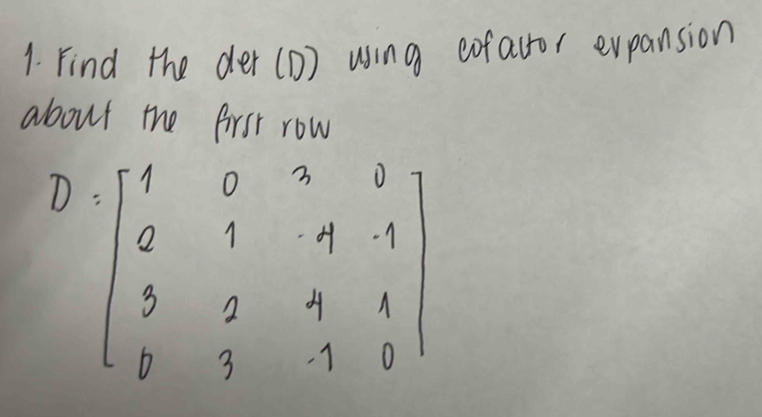 1. Find the det (D) using cofactor expansion
about the first row
D = [1 0 3 0
2 1 -4 -1
3 2 4 1
0 3 -1 0]